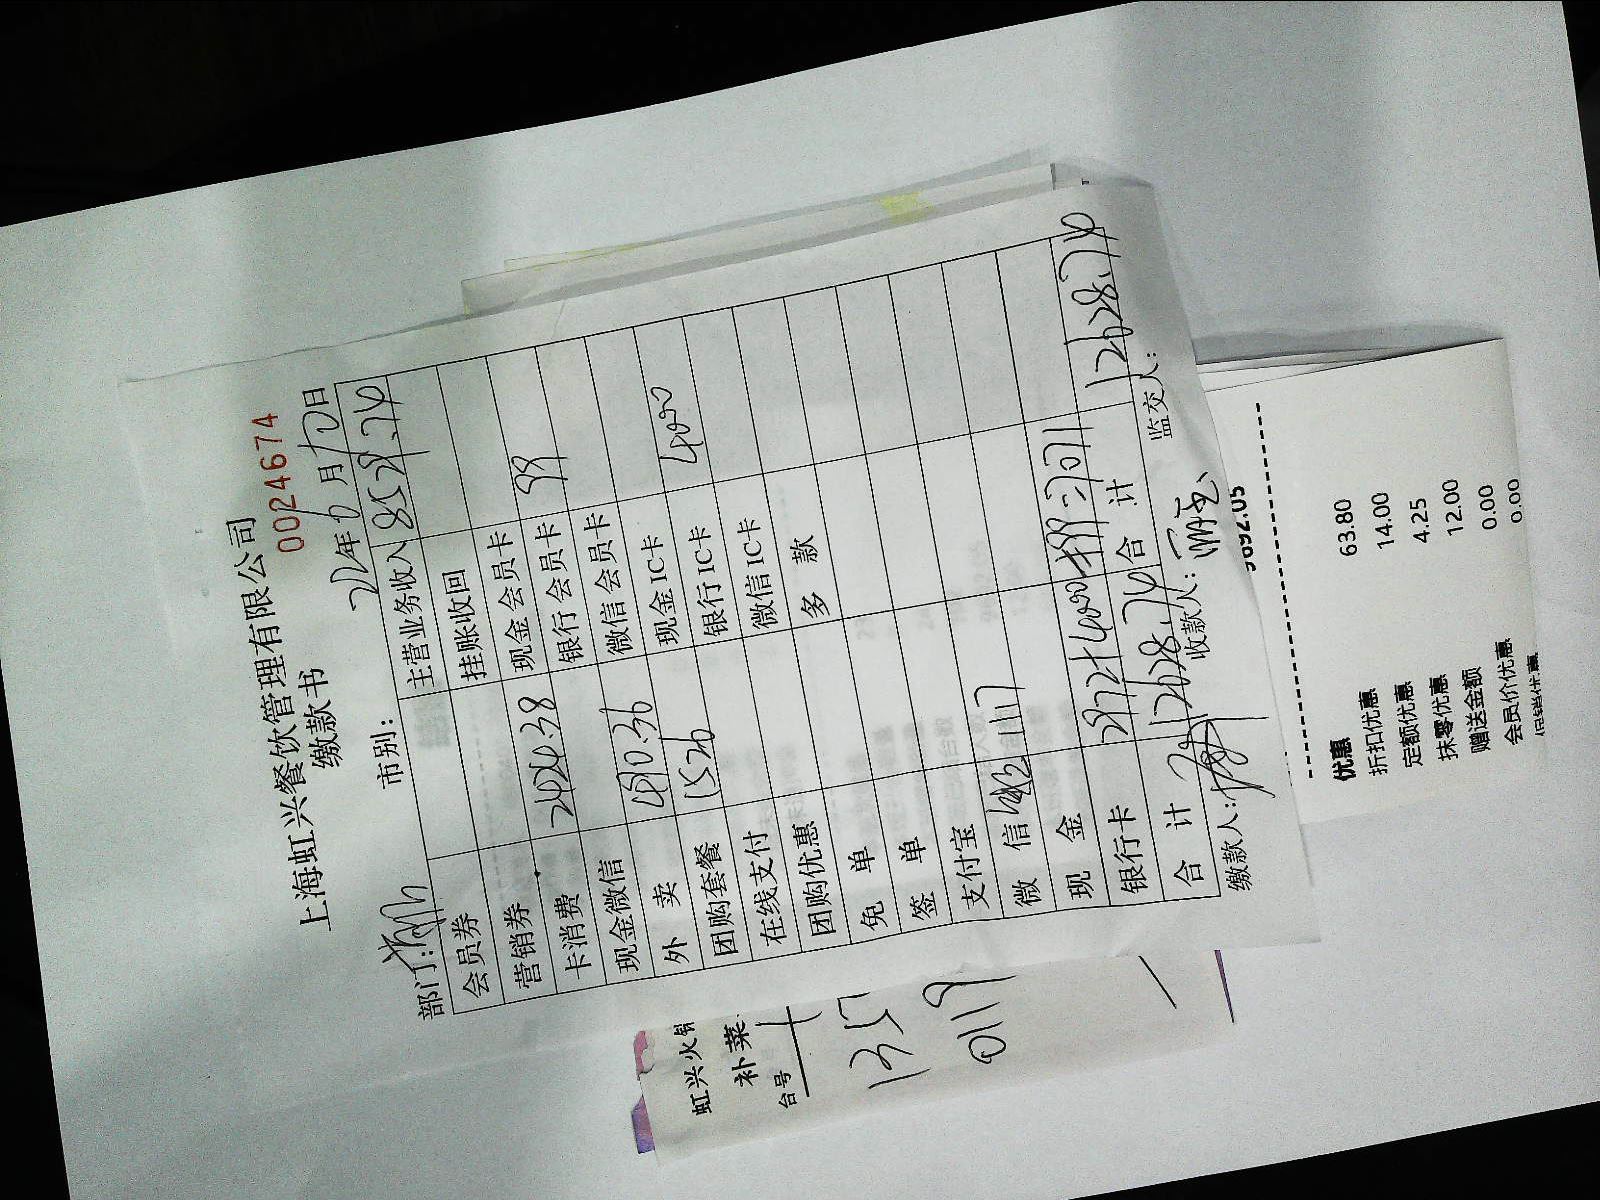 上海虹兴餐饮管理有限公司
缴款书
0024674
部门:
市别:
22年6月12日
会员券
主营业务收入 8529.74
营销券
挂账收回
卡消费 2424.38
现金会员卡
现金微信
银行会员卡 99
外卖 490.36
微信会员卡
团购套餐 1526
现金IC卡 4000
在线支付
银行IC卡
团购优惠
微信IC卡
免单
多款
签单
支付宝
微信 1117
现金
银行卡 2972+4000
合计 12628.74
合计 12628.74
缴款人:
收款人:
监交人:
虹兴火锅
补菜
台号
0119
优惠
折扣优惠 63.80
定额优惠 14.00
抹零优惠 4.25
赠送金额 12.00
会员价优惠 0.00
促销优惠 0.00